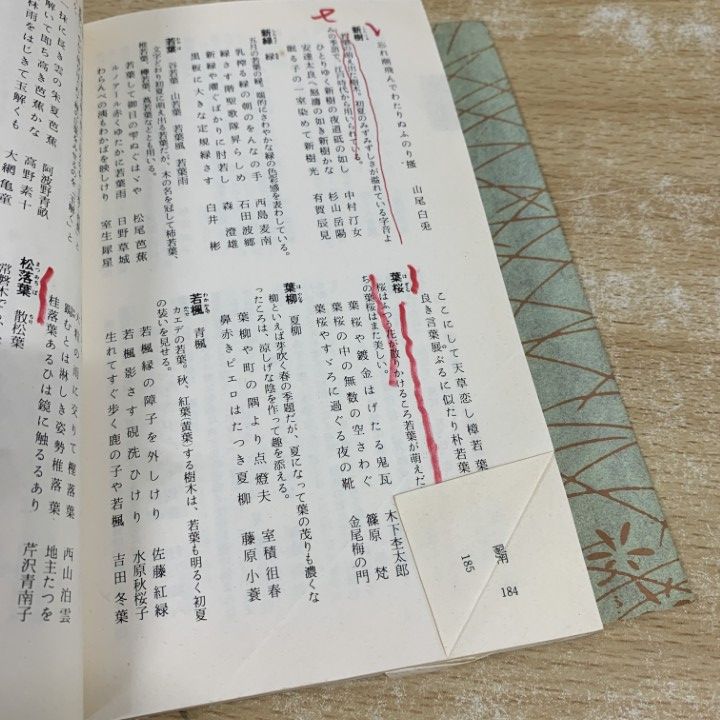 忘れ潮飛んでわたりぬふのり掻 山尾白兎
新樹
若葉の萌え出た樹木。初夏のみずみずしさが溢れている字音よ
みの季語で、江戸時代から用いられている。
ひとりゆく新樹の夜道砥の如し 中村汀女
安達太良へ怒濤の如き新樹かな 杉山岳陽
眠る子の一室染めて新樹光 有賀辰見
新緑 緑
五月の若葉の緑。端的にさわやかな緑の色彩感を表わしている。
乳搾る緑の朝のをんなの手 西島麦南
緑さす階聖歌隊昇らしめ 石田波郷
新緑や濯ぐばかりに肘若し 森 澄雄
黒板に大きな定規緑さす 白井 彬
若葉 谷若葉 山若葉 若葉風 若葉雨
文字どおり初夏に萌え出る若葉だが、木の名を冠して柿若葉、
椎若葉、樟若葉、蔦若葉などとも用いる。
若葉して御目の雫ぬぐはゞや 松尾芭蕉
ルノアール赤くゆたかに若葉雨 日野草城
わらんべの洟もわかばを映しけり 室生犀星
ここにして天草恋し樟若葉
良き言葉展ぶるに似たり朴若葉
葉桜
桜はふつう花が散りかけるころ若葉が萌えだ
ちの葉桜はまた美しい。
葉桜や鍍金はげたる鬼瓦 木下杢太郎
葉桜の中の無数の空さわぐ 篠原 梵
葉桜やすゞろに過ぐる夜の靴 金尾梅の門
葉柳 夏柳
柳といえば芽吹く春の季題だが、夏になって葉の茂りも濃くな
ったころは、涼しげな陰を作って趣を添える。
葉柳や町の隅より点燈夫 室積徂春
鼻赤きピエロはたつき夏柳 藤原小蓑
若楓 青楓
カエデの若葉。秋、紅葉(黄葉)する樹木は、若葉も明るく初夏
の装いを見せる。
若楓緑の障子を外しけり 佐藤紅緑
若楓影さす硯洗ひけり 水原秋桜子
生れてすぐ歩く鹿の子や若楓 吉田冬葉
184
185
一抹に長き雲の朱夏芭蕉 阿波野青畝
解いて即ち高き芭蕉かな 高野素十
林雨をはじきて玉解くも 大網亀童
雨に交りて樫落葉 西山泊雲
鎰むとは淋しき姿勢椎落葉 地主たつを
桂落葉あるひは鏡に触るるあり 芹沢青南子
松落葉 散松葉